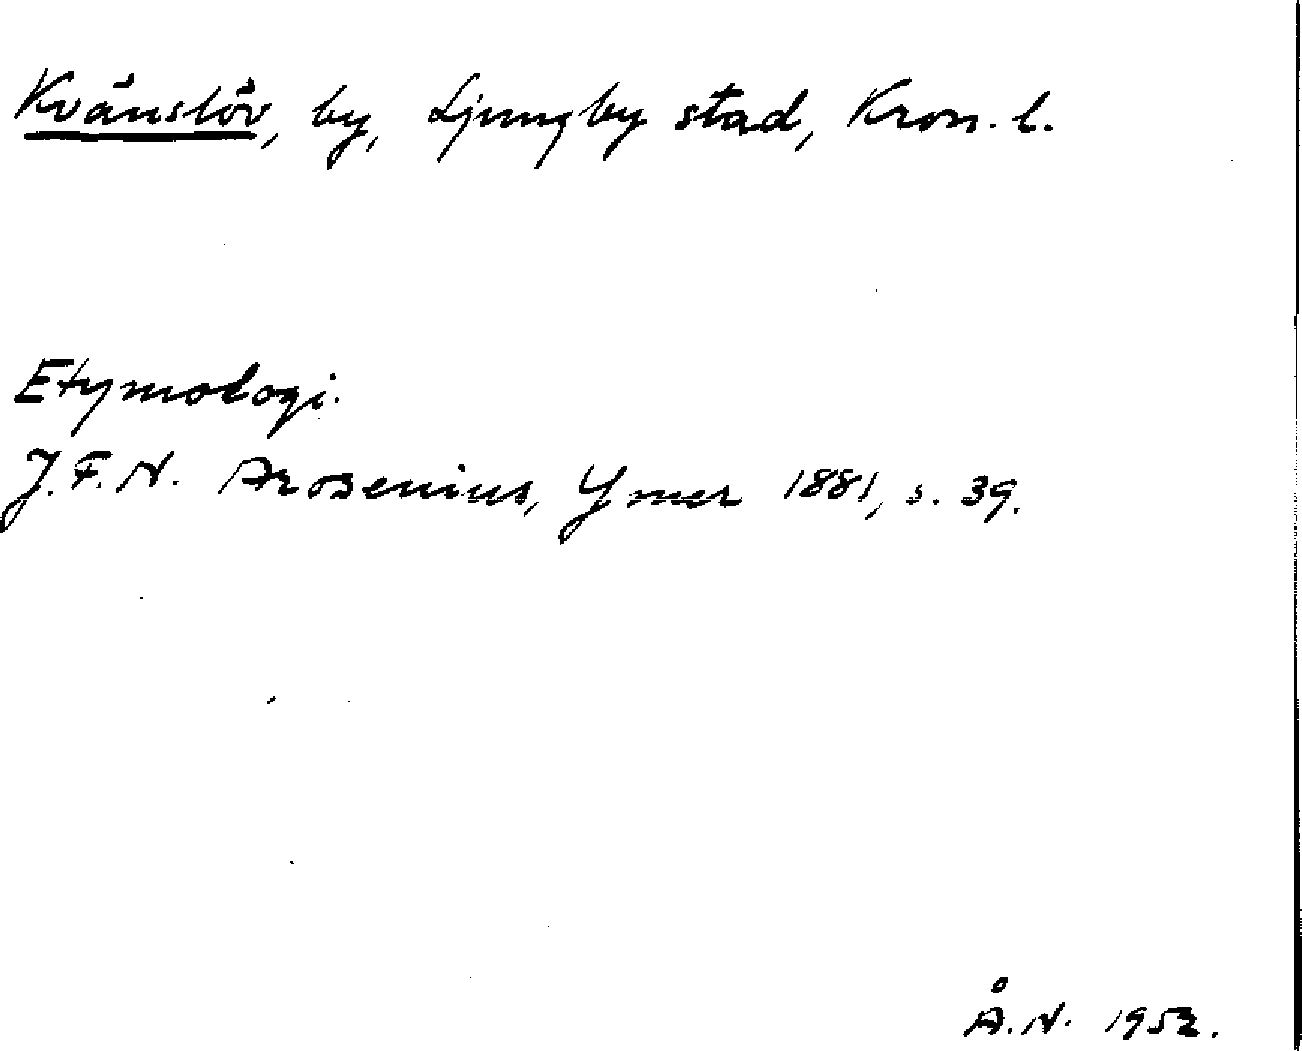 Kvänslöv, by, Ljungby stad, Kron. l.
Etymologi.
J. F. N. Arosenius, Ymer 1881, s. 39.
Å. N. 1952.